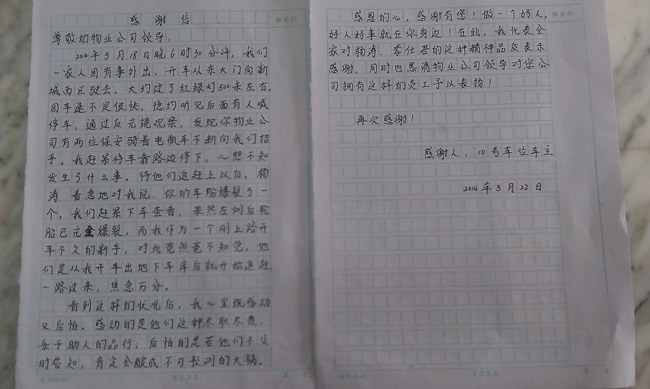 感谢信
尊敬的物业公司领导:
2014年5月18日晚6时30分许,我们
一家人因有事外出,开车从东大门向新
城西区驶去,大约过了红绿灯500米左右,
因车速不是很快,隐约听见后面有人喊
停车,通过反光镜观察,发现你物业公
司有两位保安骑着电瓶车不断向我们招
手,我赶紧将车靠路边停下,心想不知
发生了什么事,待他们追赶上以后,杨
涛着急地对我说:你的车胎爆裂了一
个,我们赶紧下车查看,果然左侧后轮
胎已完全爆裂,而我作为一个刚上路开
车不久的新手,对此竟然毫不知觉,他
们是从我开车出地下车库后就开始追赶,
一路过来,焦急万分。
看到这样的状况后,我心里既感动
又后怕,感动的是他们这种尽职尽责、
乐于助人的品行;后怕的是若他们不及
时告知,肯定会酿成不可预测的大祸。
感恩的心,感谢有您!做一个好人,
好人好事就在你身边!在此,我代表全
家对杨涛、李任君的这种精神品质表示
感谢,同时也恳请物业公司领导对您公
司拥有这样的员工予以表扬!
再次感谢!
感谢人:10号车位车主
2014年5月22日